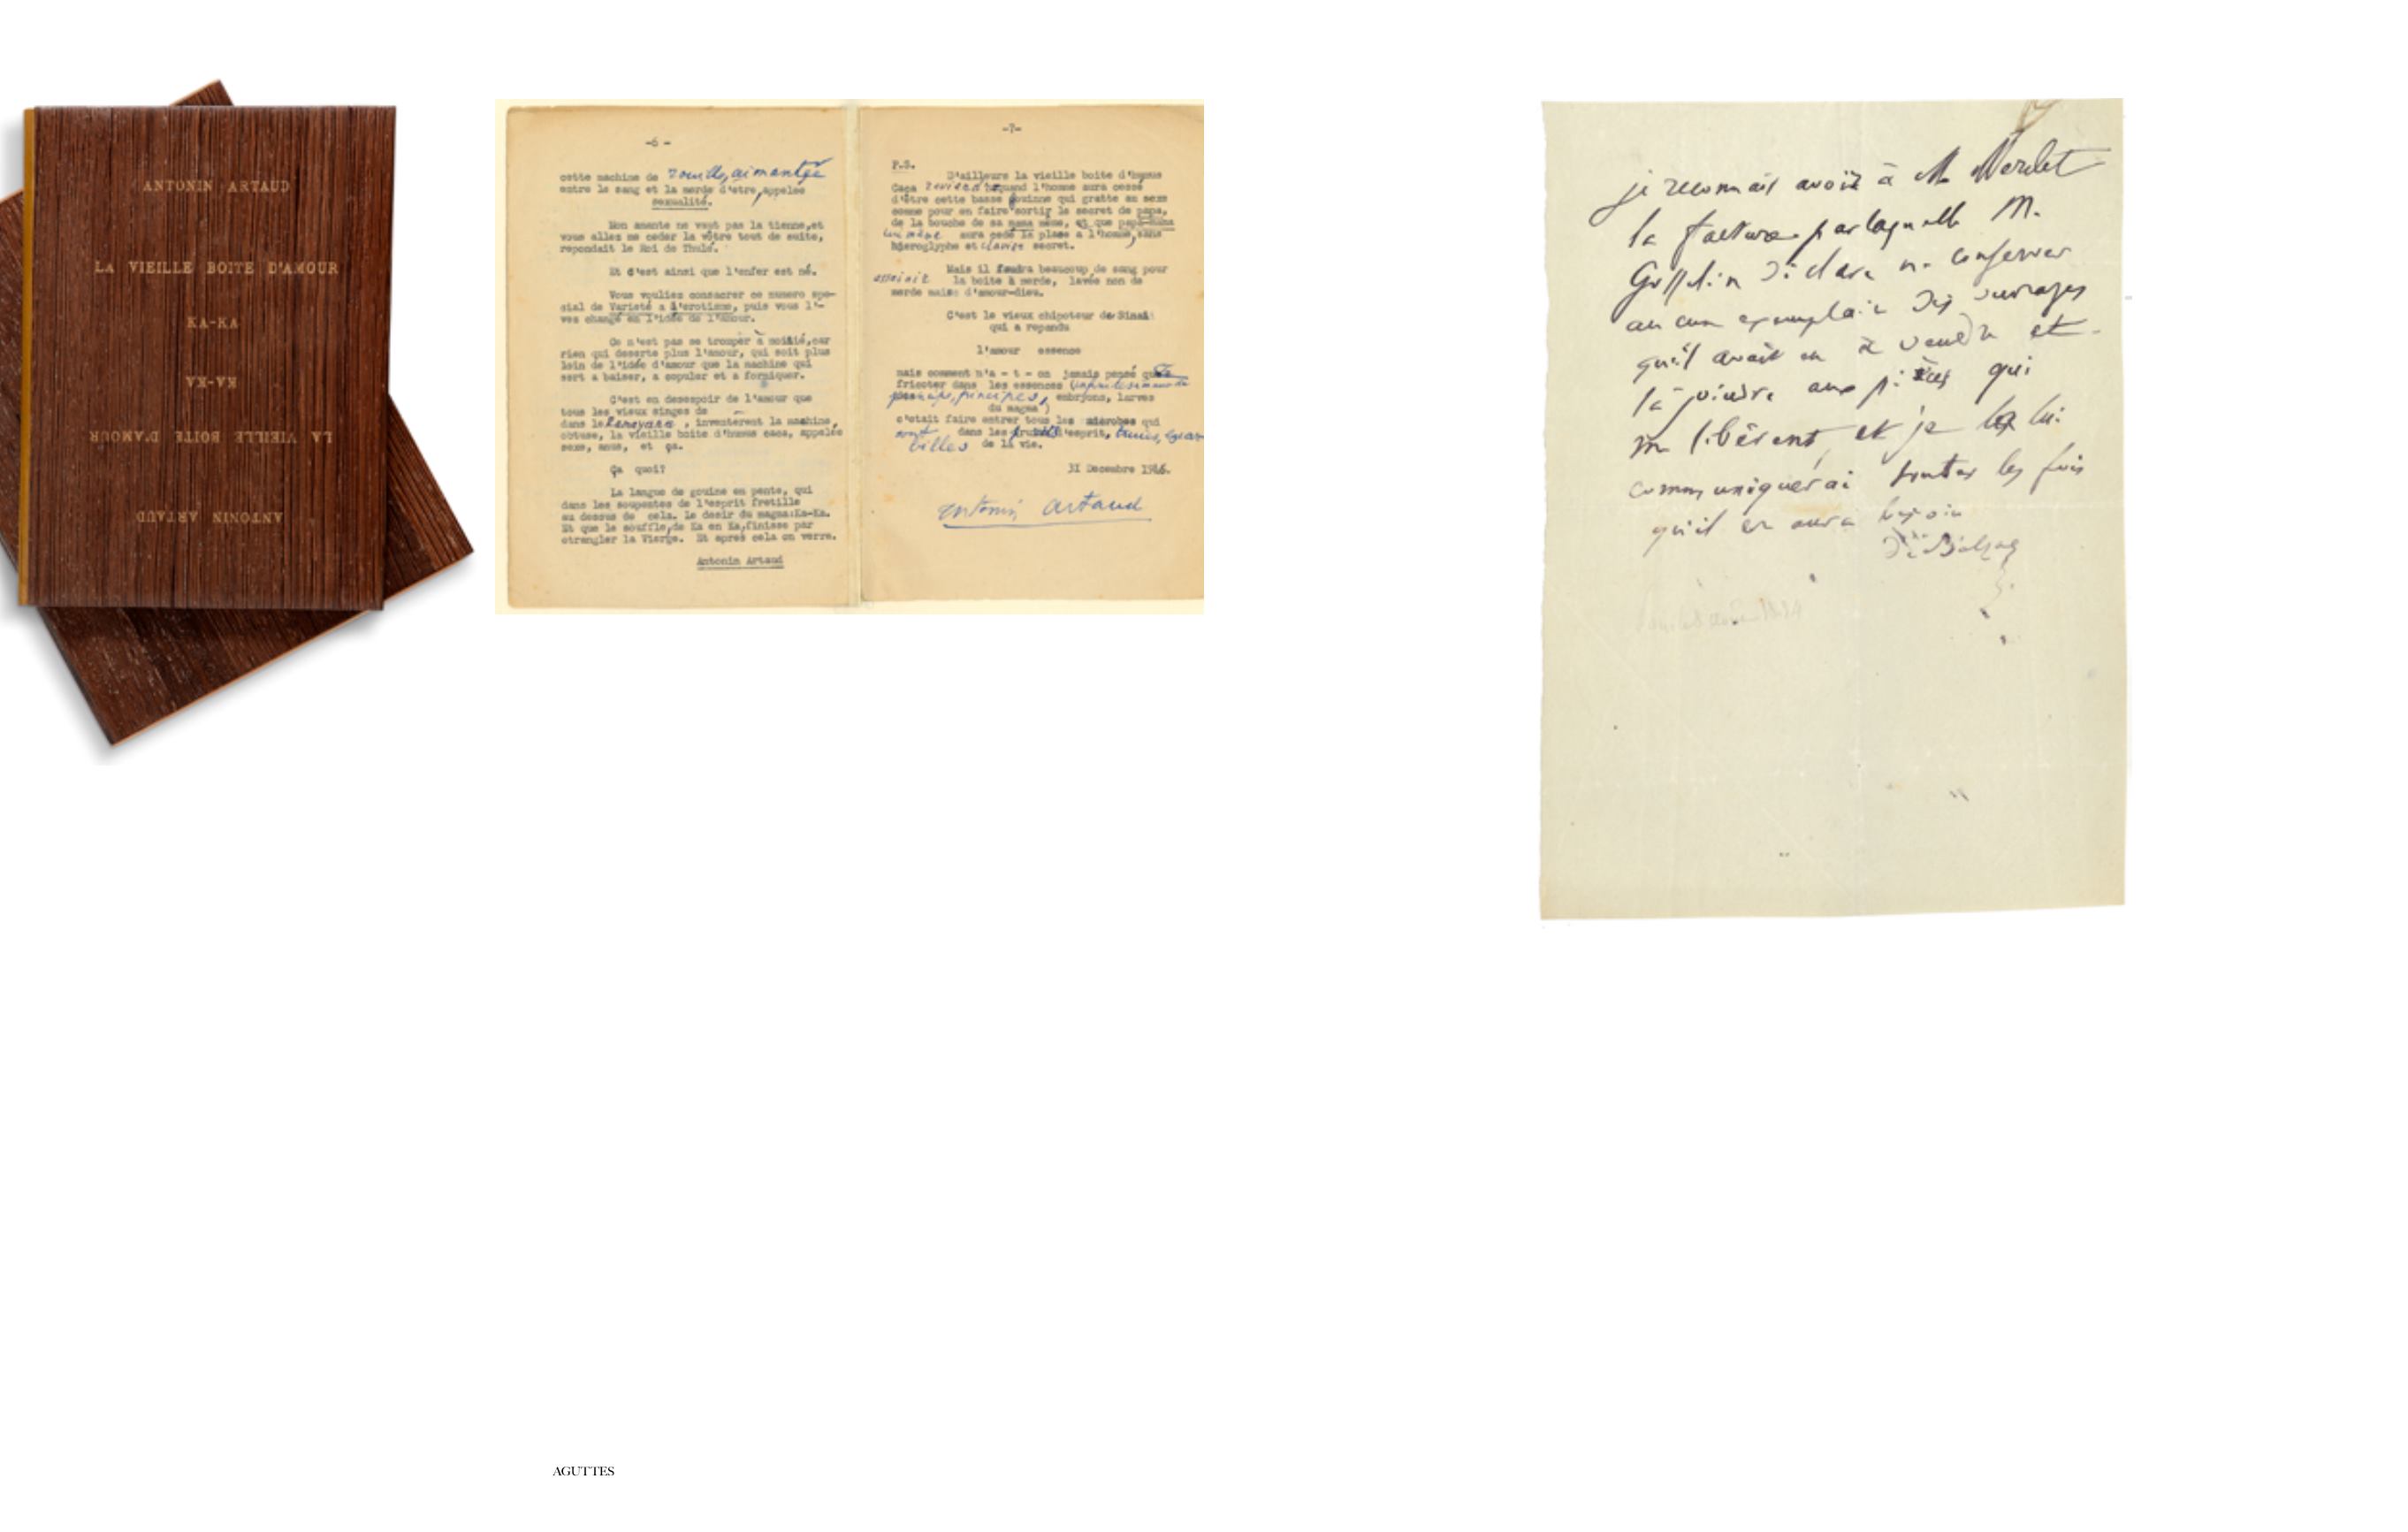 ANTONIN ARTAUD
LA VIEILLE BOITE D'AMOUR
KA-KA
KA-KA
LA VIEILLE BOITE D'AMOUR
ANTONIN ARTAUD
-6-
cette machine de rouille, aimantée
entre le sang et la merde d'etre, appelée
sexualité.
Mon amante ne vaut pas la tienne, et
vous allez me ceder la vôtre tout de suite,
repondait le Roi de Thulé.
Et c'est ainsi que l'enfer est né.
Vous vouliez consacrer ce numero spe-
cial de Varieté a l'erotisme, puis vous l'-
vez changé en l'idée de l'amour.
Ce n'est pas se tromper à moitié, car
rien qui deserte plus l'amour, qui soit plus
loin de l'idée d'amour que la machine qui
sert a baiser, a copuler et a forniquer.
C'est en desespoir de l'amour que
tous les vieux singes de
dans le Ramayana, inventerent la machine,
obtuse, la vieille boite d'humus caca, appelée
sexe, anus, et ça.
Ça quoi?
La langue de gouine en pente, qui
dans les soupentes de l'esprit fretille
au dessus de cela. Le desir du magma:Ka-Ka.
Et que le souffle, de Ka en Ka, finisse par
etrangler la Vierge. Et apres cela on verra.
Antonin Artaud
-7-
P.S.
D'ailleurs la vieille boite d'humus
Caca quand l'homme aura cessé
d'être cette basse gouinne qui gratte en sexe
comme pour en faire sortir le secret de papa,
de la bouche de sa mama même, et que papa-mama
lui même aura cedé la place a l'homme, sans
hieroglyphe et secret.
Mais il faudra beaucoup de sang pour
assainir la boite à merde, lavée non de
merde mais d'amour-dieu.
C'est le vieux chipoteur de Sinaï
qui a repandu
l'amour essence
mais comment n'a - t - on jamais pensé que
fricoter dans les essences
principes, embryons, larves
du magma)
c'etait faire entrer tous les microbes qui
dans les l'esprit,
de la vie.
31 Decembre 1946.
antonin artaud
je reconnais avoir à M Werdet
la facture par laquelle M.
Gosselin déclare ne conserver
aucun exemplaire des ouvrages
qu'il avait eu à vendre et
la joindre aux pièces qui
me libèrent, et je la lui
communiquerai toutes les fois
qu'il en aura besoin
de Balzac
AGUTTES